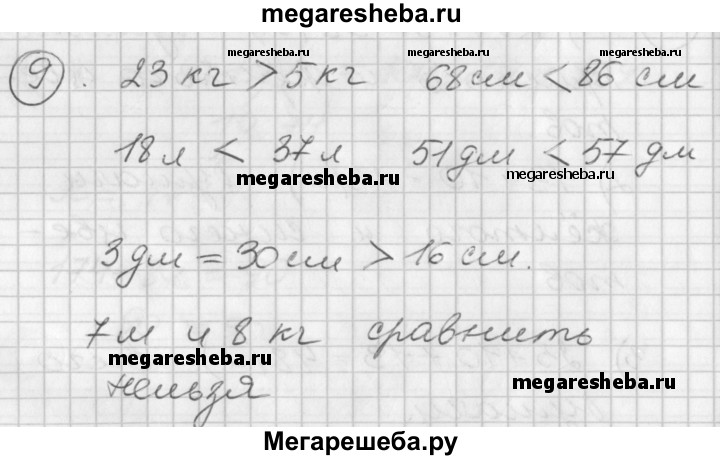 megaresheba.ru
9. 23 кг > 5 кг 68 см < 86 см
megaresheba.ru megaresheba.ru
18 л < 37 л 51 дм < 57 дм
megaresheba.ru megaresheba.ru
3 дм = 30 см > 16 см.
7 м и 8 кг сравнить
megaresheba.ru
нельзя
megaresheba.ru
Мегарешеба.ру